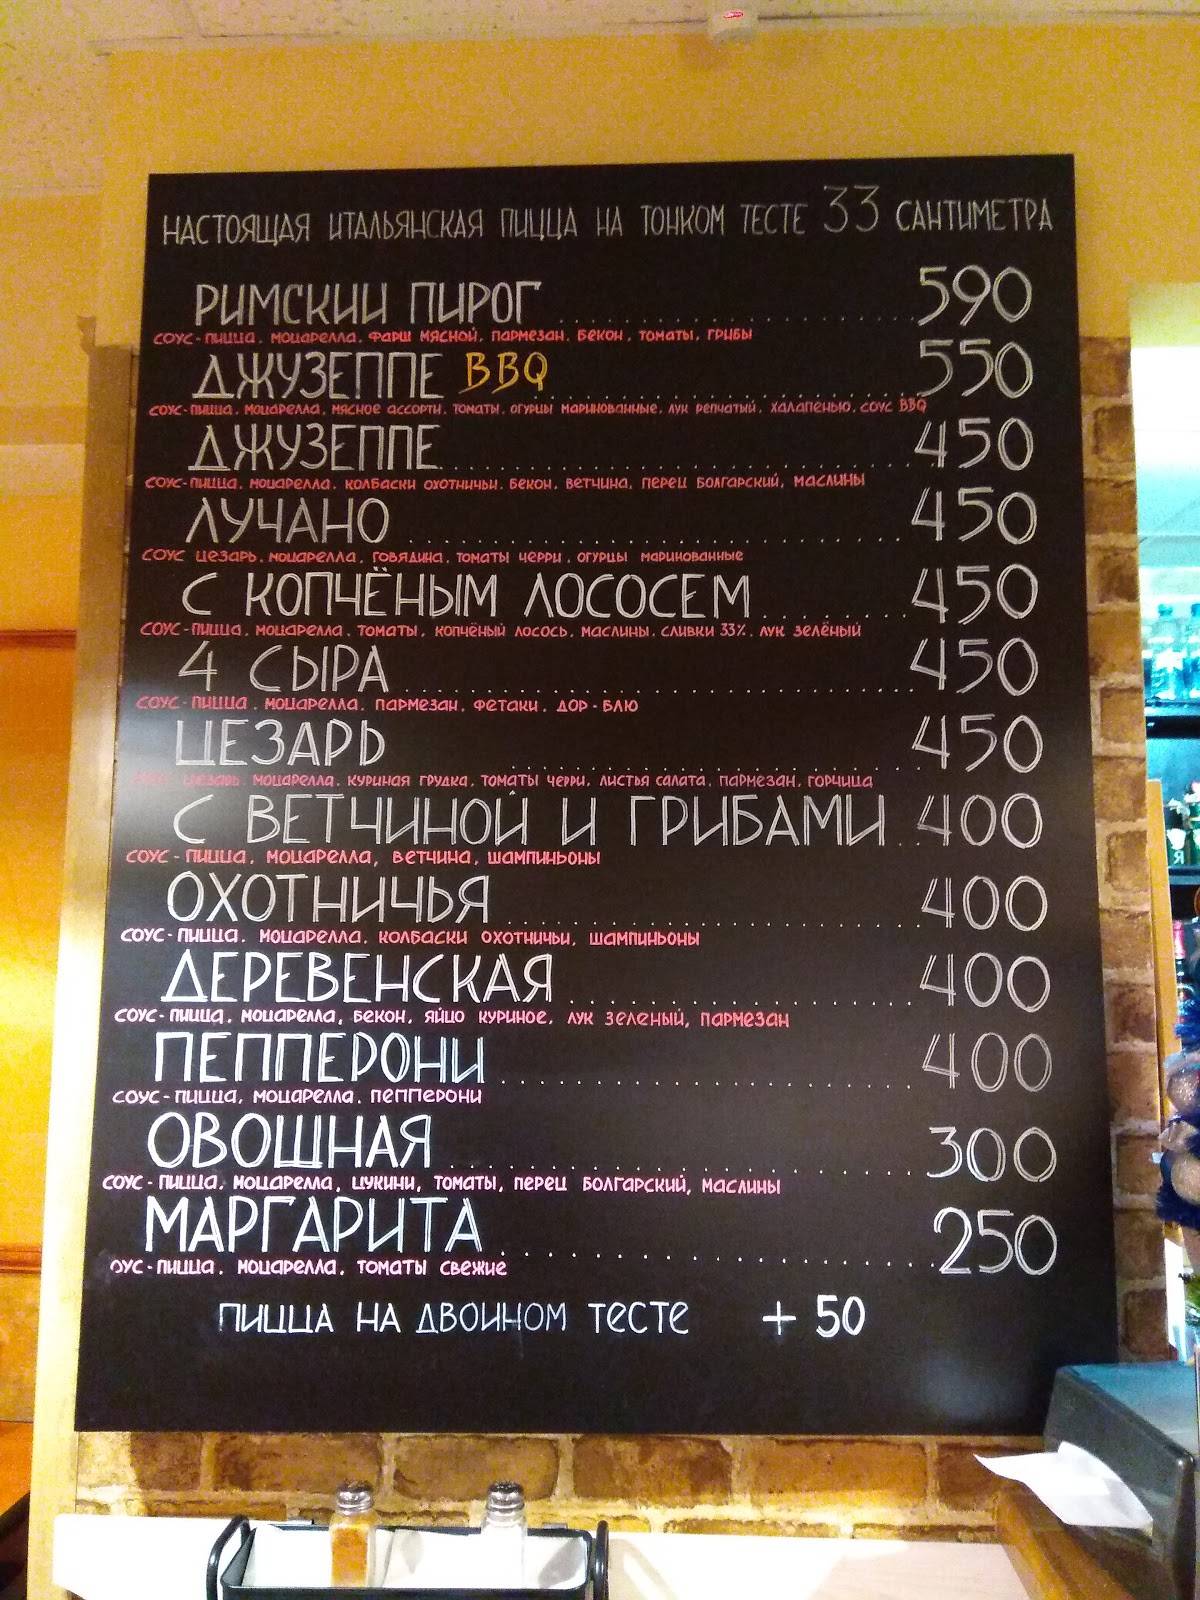 НАСТОЯЩАЯ ИТАЛЬЯНСКАЯ ПИЦЦА НА ТОНКОМ ТЕСТЕ 33 САНТИМЕТРА
РИМСКИЙ ПИРОГ 590
СОУС-ПИЦЦА, МОЦАРЕЛЛА, ФАРШ МЯСНОЙ, ПАРМЕЗАН, БЕКОН, ТОМАТЫ, ГРИБЫ
ДЖУЗЕППЕ BBQ 550
СОУС-ПИЦЦА, МОЦАРЕЛЛА, МЯСНОЕ АССОРТИ, ТОМАТЫ, ОГУРЦЫ МАРИНОВАННЫЕ, ЛУК РЕПЧАТЫЙ, ХАЛАПЕНЬЮ, СОУС BBQ
ДЖУЗЕППЕ 450
СОУС-ПИЦЦА, МОЦАРЕЛЛА, КОЛБАСКИ ОХОТНИЧЬИ, БЕКОН, ВЕТЧИНА, ПЕРЕЦ БОЛГАРСКИЙ, МАСЛИНЫ
ЛУЧАНО 450
СОУС ЦЕЗАРЬ, МОЦАРЕЛЛА, ГОВЯДИНА, ТОМАТЫ ЧЕРРИ, ОГУРЦЫ МАРИНОВАННЫЕ
С КОПЧЁНЫМ ЛОСОСЕМ 450
СОУС-ПИЦЦА, МОЦАРЕЛЛА, ТОМАТЫ, КОПЧЁНЫЙ ЛОСОСЬ, МАСЛИНЫ, СЛИВКИ 33%, ЛУК ЗЕЛЁНЫЙ
4 СЫРА 450
СОУС-ПИЦЦА, МОЦАРЕЛЛА, ПАРМЕЗАН, ФЕТАКИ, ДОР-БЛЮ
ЦЕЗАРЬ 450
ЦЕЗАРЬ, МОЦАРЕЛЛА, КУРИНАЯ ГРУДКА, ТОМАТЫ ЧЕРРИ, ЛИСТЬЯ САЛАТА, ПАРМЕЗАН, ГОРЧИЦА
С ВЕТЧИНОЙ И ГРИБАМИ 400
СОУС-ПИЦЦА, МОЦАРЕЛЛА, ВЕТЧИНА, ШАМПИНЬОНЫ
ОХОТНИЧЬЯ 400
СОУС-ПИЦЦА, МОЦАРЕЛЛА, КОЛБАСКИ ОХОТНИЧЬИ, ШАМПИНЬОНЫ
ДЕРЕВЕНСКАЯ 400
СОУС-ПИЦЦА, МОЦАРЕЛЛА, БЕКОН, ЯЙЦО КУРИНОЕ, ЛУК ЗЕЛЕНЫЙ, ПАРМЕЗАН
ПЕППЕРОНИ 400
СОУС-ПИЦЦА, МОЦАРЕЛЛА, ПЕППЕРОНИ
ОВОЩНАЯ 300
СОУС-ПИЦЦА, МОЦАРЕЛЛА, ЦУКИНИ, ТОМАТЫ, ПЕРЕЦ БОЛГАРСКИЙ, МАСЛИНЫ
МАРГАРИТА 250
ОУС-ПИЦЦА, МОЦАРЕЛЛА, ТОМАТЫ СВЕЖИЕ
ПИЦЦА НА ДВОЙНОМ ТЕСТЕ +50